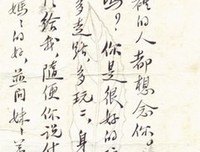 的人都想念你
吗?你是很好的
多走路,多玩二、身
给我,随便你说什
妈:的好,并问妹